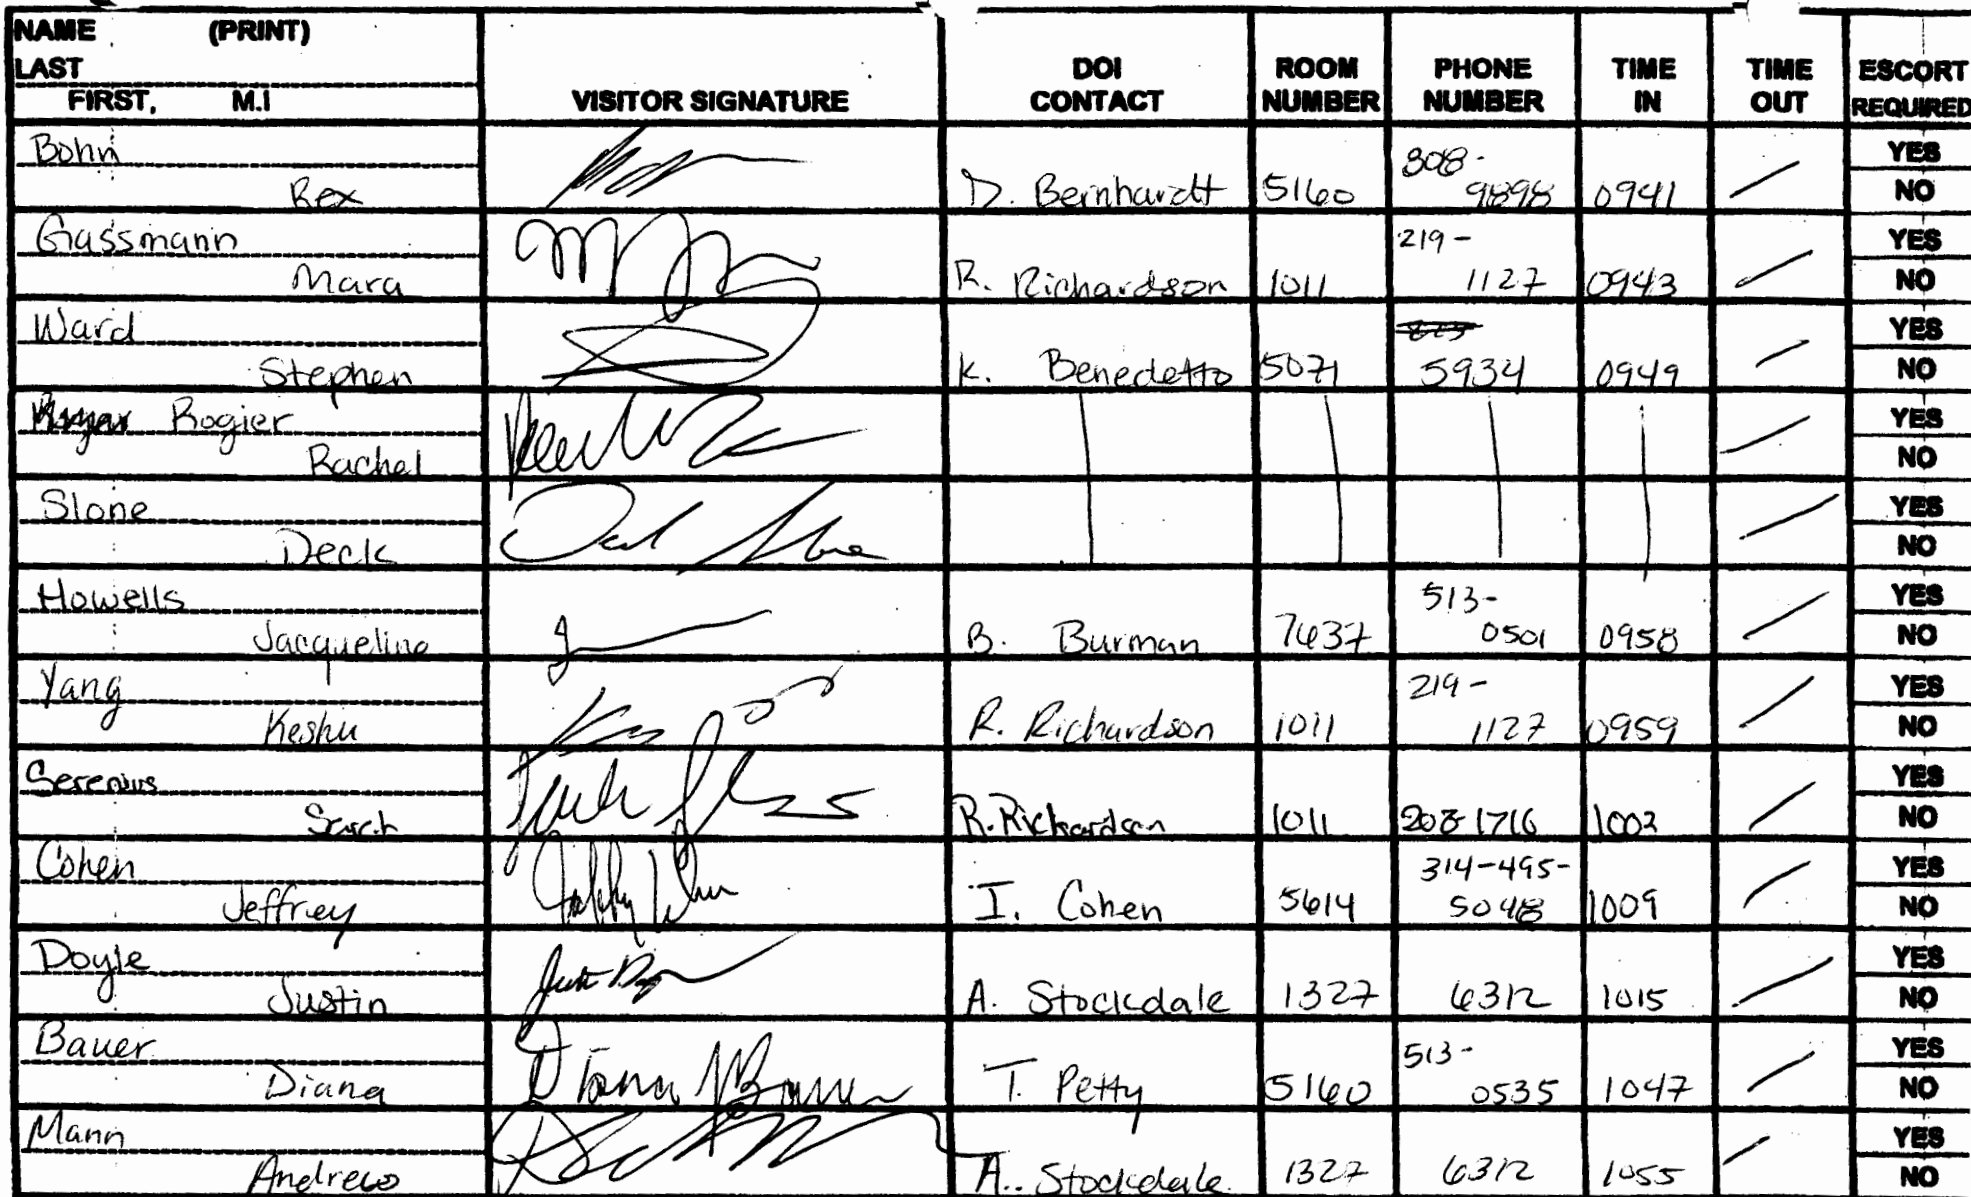 NAME (PRINT)
LAST
FIRST, M.I
VISITOR SIGNATURE
DOI
CONTACT
ROOM
NUMBER
PHONE
NUMBER
TIME
IN
TIME
OUT
ESCORT
REQUIRED
Bohn
Rex
D. Bernhardt 5160 308-
9898 0941
YES
NO
Gassmann
Mara
R. Richardson 1011 219-
1127 0943
YES
NO
Ward
Stephen
K. Benedetto 5071 5934 0949
YES
NO
Rogier
Rachel
YES
NO
Slone
Deck
YES
NO
Howells
Jacqueline
B. Burman 7637 513-
0501 0958
YES
NO
Yang
Keshu
R. Richardson 1011 219-
1127 0959
YES
NO
Serenius
Sarah
R. Richardson 1011 208-1716 1002
YES
NO
Cohen
Jeffrey
I. Cohen 5614 314-495-
5048 1009
YES
NO
Doyle
Justin
A. Stockdale 1327 6312 1015
YES
NO
Bauer
Diana
T. Petty 5160 513-
0535 1047
YES
NO
Mann
Andrew
A. Stockdale 1327 6312 1055
YES
NO